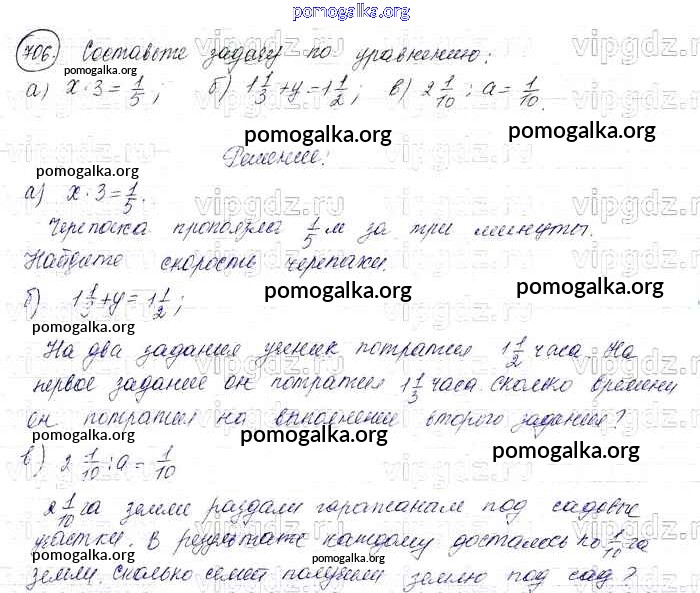 pomogalka.org
706. Составьте задачу по уравнению:
pomogalka.org
а) x · 3 = 1/5; б) 1 1/3 + y = 1 1/2; в) 2 1/10 : a = 1/10.
pomogalka.org pomogalka.org
Решение:
pomogalka.org
а) x · 3 = 1/5.
Черепаха проползла 1/5 м за три минуты.
Найдите скорость черепахи.
pomogalka.org pomogalka.org
б) 1 1/3 + y = 1 1/2;
pomogalka.org
На два задания ученик потратил 1 1/2 часа. На
первое задание он потратил 1 1/3 часа. Сколько времени
он потратил на выполнение второго задания?
pomogalka.org pomogalka.org pomogalka.org
в) 2 1/10 : a = 1/10
2 1/10 га земли раздали горожанам под садовые
участки. В результате каждому досталось по 1/10 га
pomogalka.org pomogalka.org
земли. Сколько семей получили землю под сад?
vipgdz.ru